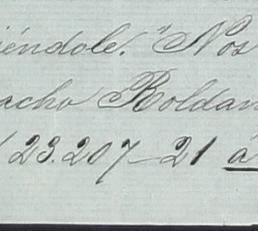 iéndole." Nos
acho Roldan
23.207-21 á